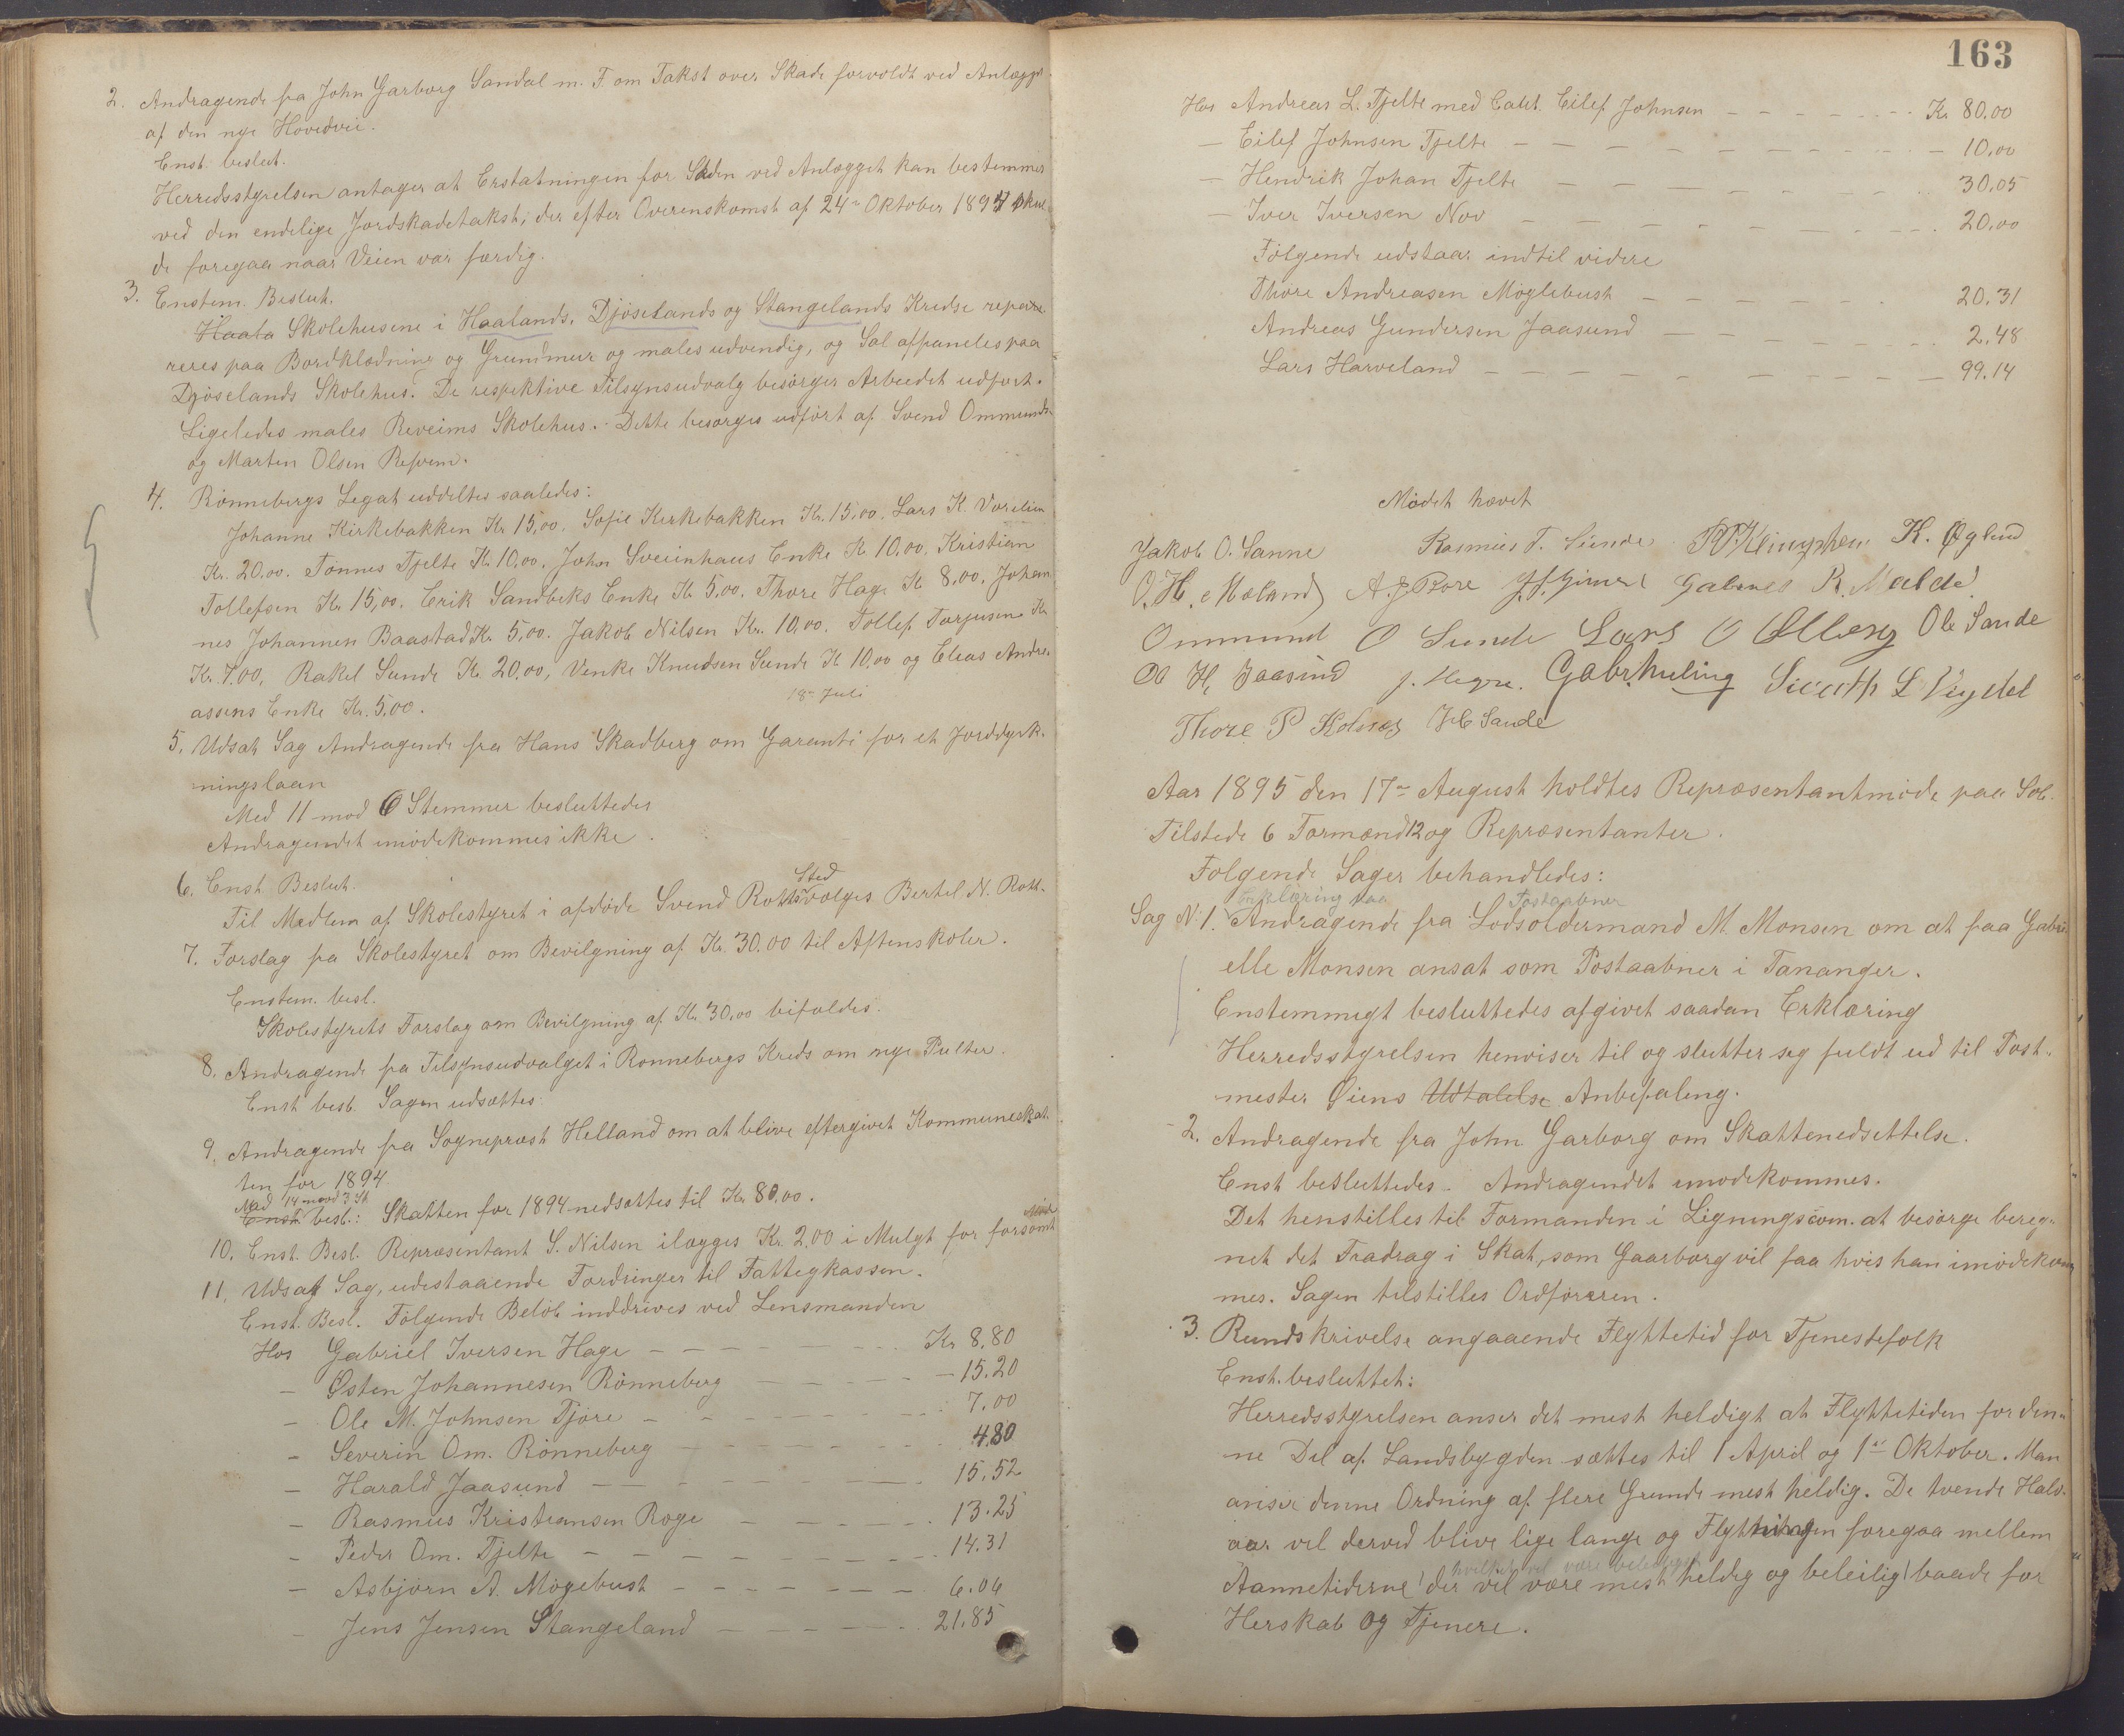 2. Andragende fra John Garborg Sandal m. F. om Takst over Skade forvoldt ved Anlægget
af den nye Hovedvei.
Enst. beslut.
Herredsstyrelsen antager at Erstatningen for Skaden ved Anlægget kan bestemmes
ved den endelige Jordskadetakst, der efter Overenskomst af 24de Oktober 1894 skul-
de foregaa naar Veien var færdig.
3. Enstem. Beslut.
Haala Skolehusene i Haalands, Djøselands og Stangelands Kredse repare-
reres paa Bordklædning og Grundmur og males udvendig, og Sal afpaneles paa
Djøselands Skolehus. De respektive Tilsynsudvalg besørger Arbeidet udført.
Ligeledes males Reveims Skolehus. - Dette besørges udført af Svend Ommunds-
og Marten Olsen Refvem.
4. Rønnebergs Legat uddeltes saaledes:
Johanne Kirkebakken Kr 15,00. Sofie Kirkebakken Kr. 15,00. Lars K. Vorelien
Kr. 20.00. Tønnes Tjelte Kr 10,00. John Sveinhaus Enke Kr 10.00. Kristian
Tollefsen Kr 15,00. Erik Sandbeks Enke Kr 5.00. Thore Hage Kr 8,00. Johan-
nes Johannen Baastad Kr. 5,00. Jakob Nilsen Kr. 10,00. Tollef Torjusens Kr
Kr. 7.00, Rakel Sunde Kr. 20,00, Venke Knudsen Sunde Kr 10,00 og Elias Andre-
assens Enke Kr. 5,00.
18de Juli
5. Udsat Sag Andragende fra Hans Skadberg om Garanti for et Jorddyrk-
ningslaan
Med 11 mod 6 Stemmer besluttedes
Andragendet imødekommes ikke.
6. Enst. Beslut.
Til Medlem af Skolestyret i afdøde Svend Rotts Sted vælges Bertel N. Rott.
7. Forslag fra Skolestyret om Bevilgning af Kr. 30.00 til Aftenskoler.
Enstem. besl.
Skolestyrets Forslag om Bevilgning af Kr. 30,00 bifaldes.
8. Andragende fra Tilsynsudvalget i Rønnebergs Kreds om nye Pulter.
Enst besl. Sagen udsættes.
9. Andragende fra Sogneprest Helland om at blive eftergivet Kommuneskat-
ten for 1894.
Med 14 mod 3 St
Enst besl.: Skatten for 1894 nedsættes til Kr 80,00.
10. Enst. Besl. Repræsentant S. Nilsen ilægges Kr. 2,00 i Mulgt for forsømt
11. Udsat Sag, udestaaende Fordringer til Fattigkassen.
Enst. Besl. Følgende Beløb inddrives ved Lensmanden
Hos Gabriel Iversen Hage - - - Kr 8,80
- Østen Johannesen Rønneberg - - - 15.20
- Ole M. Johnsen Tjøre - - - 7.00
- Severin Om. Rønneberg - - - 4.80
- Harald Jaasund - - - 15.52
- Rasmus Kristiansen Røge - - - 13.25
- Peder Om. Tjelte - - - 14.31
- Asbjørn A. Møgebust - - - 6.06
- Jens Jensen Stangeland - - - 21.85
163
Hos Andreas L. Tjelte med Caut. Eilef Johnsen - - - Kr 80.00
- Eilef Johnsen Tjelte - - - 10.00
- Hendrik Johan Tjelte - - - 30.05
- Iver Iversen Nov - - - 20.00
Følgende udstaar indtil videre
Thore Andreasen Møglebust - - - 20.31
Andreas Gundersen Jaasund - - - 2.48
Lars Harveland - - - 99.14
Mødet hævet
Jakob O. Sanne Rasmus T. Sunde K. Øglend
O. H. Meland A. J. Bore Gabriel R. Malde
Ommund O Sunde Lars O Ole Sande
O H, Jaasund J. Hegre.
Thore P Kolnes J. E. Sande
Aar 1895 den 17de August holdtes Repræsentantmøde paa Sole
Tilstede 6 Formænd og 12 Repræsentanter.
Følgende Sager behandledes:
Erklæring paa Postaabner
Sag N. 1. Andragende fra Lodsoldermand M. Monsen om at faa Gabri-
elle Monsen ansat som Postaabner i Tananger.
Enstemmigt besluttedes afgivet saadan Erklæring
Herredsstyrelsen henviser til og slutter sig fuldt ud til Post-
mester Øiens Udtalelse Anbefaling.
- 2. Andragende fra John Garborg om Skattenedsettelse.
Enst besluttedes - Andragendet imødekommes.
Det henstilles til Formanden i Ligningscom. at besørge bereg-
net det Fradrag i Skat, som Gaarborg vil faa hvis han imødekom-
mes. Sagen tilstilles Ordføreren.
- 3. Rundskrivelse angaaende Flyttetid for Tjenestefolk
Enst. besluttet:
Herredsstyrelsen anser det mest heldigt at Flyttetiden for den-
ne Del af Landsbygden sættes til 1 April og 1ste Oktober. Man
anser denne Ordning af flere Grunde mest heldig. De tvende Halv-
aar vil derved blive lige lange og Flytningen foregaa mellem
hvilket vil være beleiligst
Aannetiderne der vil være mest heldig og beleilig baade for
Herskab og Tjenere.